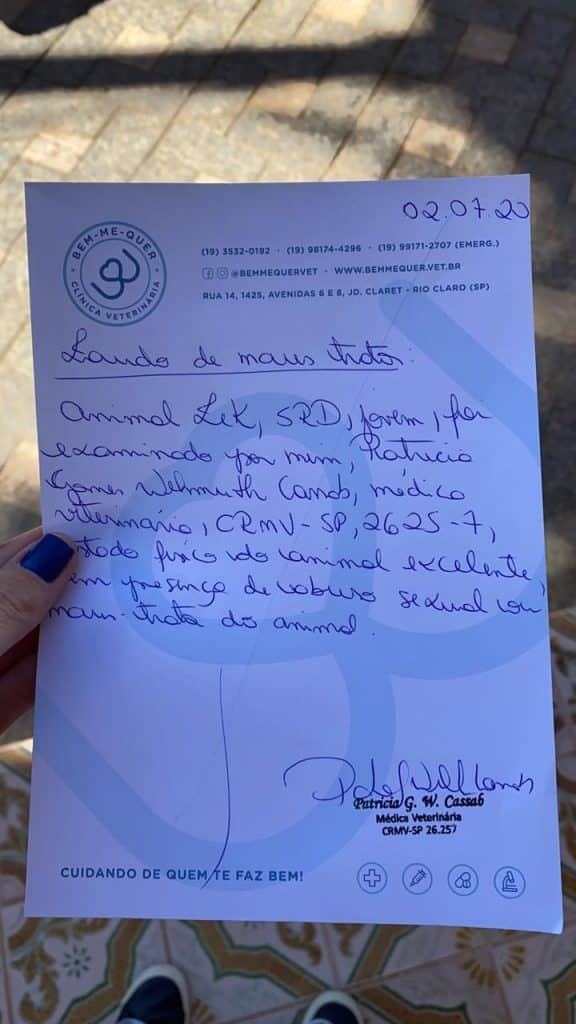 02.07.20
BEM-ME-QUER
CLÍNICA VETERINÁRIA
(19) 3532-0192 · (19) 98174-4296 · (19) 99171-2707 (EMERG.)
@BEMMEQUERVET · WWW.BEMMEQUER.VET.BR
RUA 14, 1425, AVENIDAS 6 E 8, JD. CLARET - RIO CLARO (SP)
Laudo de maus tratos:
Animal Lek, SRD, jovem, foi
examinado por mim, Patricia
Gomes Wehmuth, médica
veterinária, CRMV-SP, 2625-7,
físico do animal excelente,
presença de abuso sexual ou
maus-tratos do animal.
Patrícia G. W. Cassab
Médica Veterinária
CRMV-SP 26.257
CUIDANDO DE QUEM TE FAZ BEM!